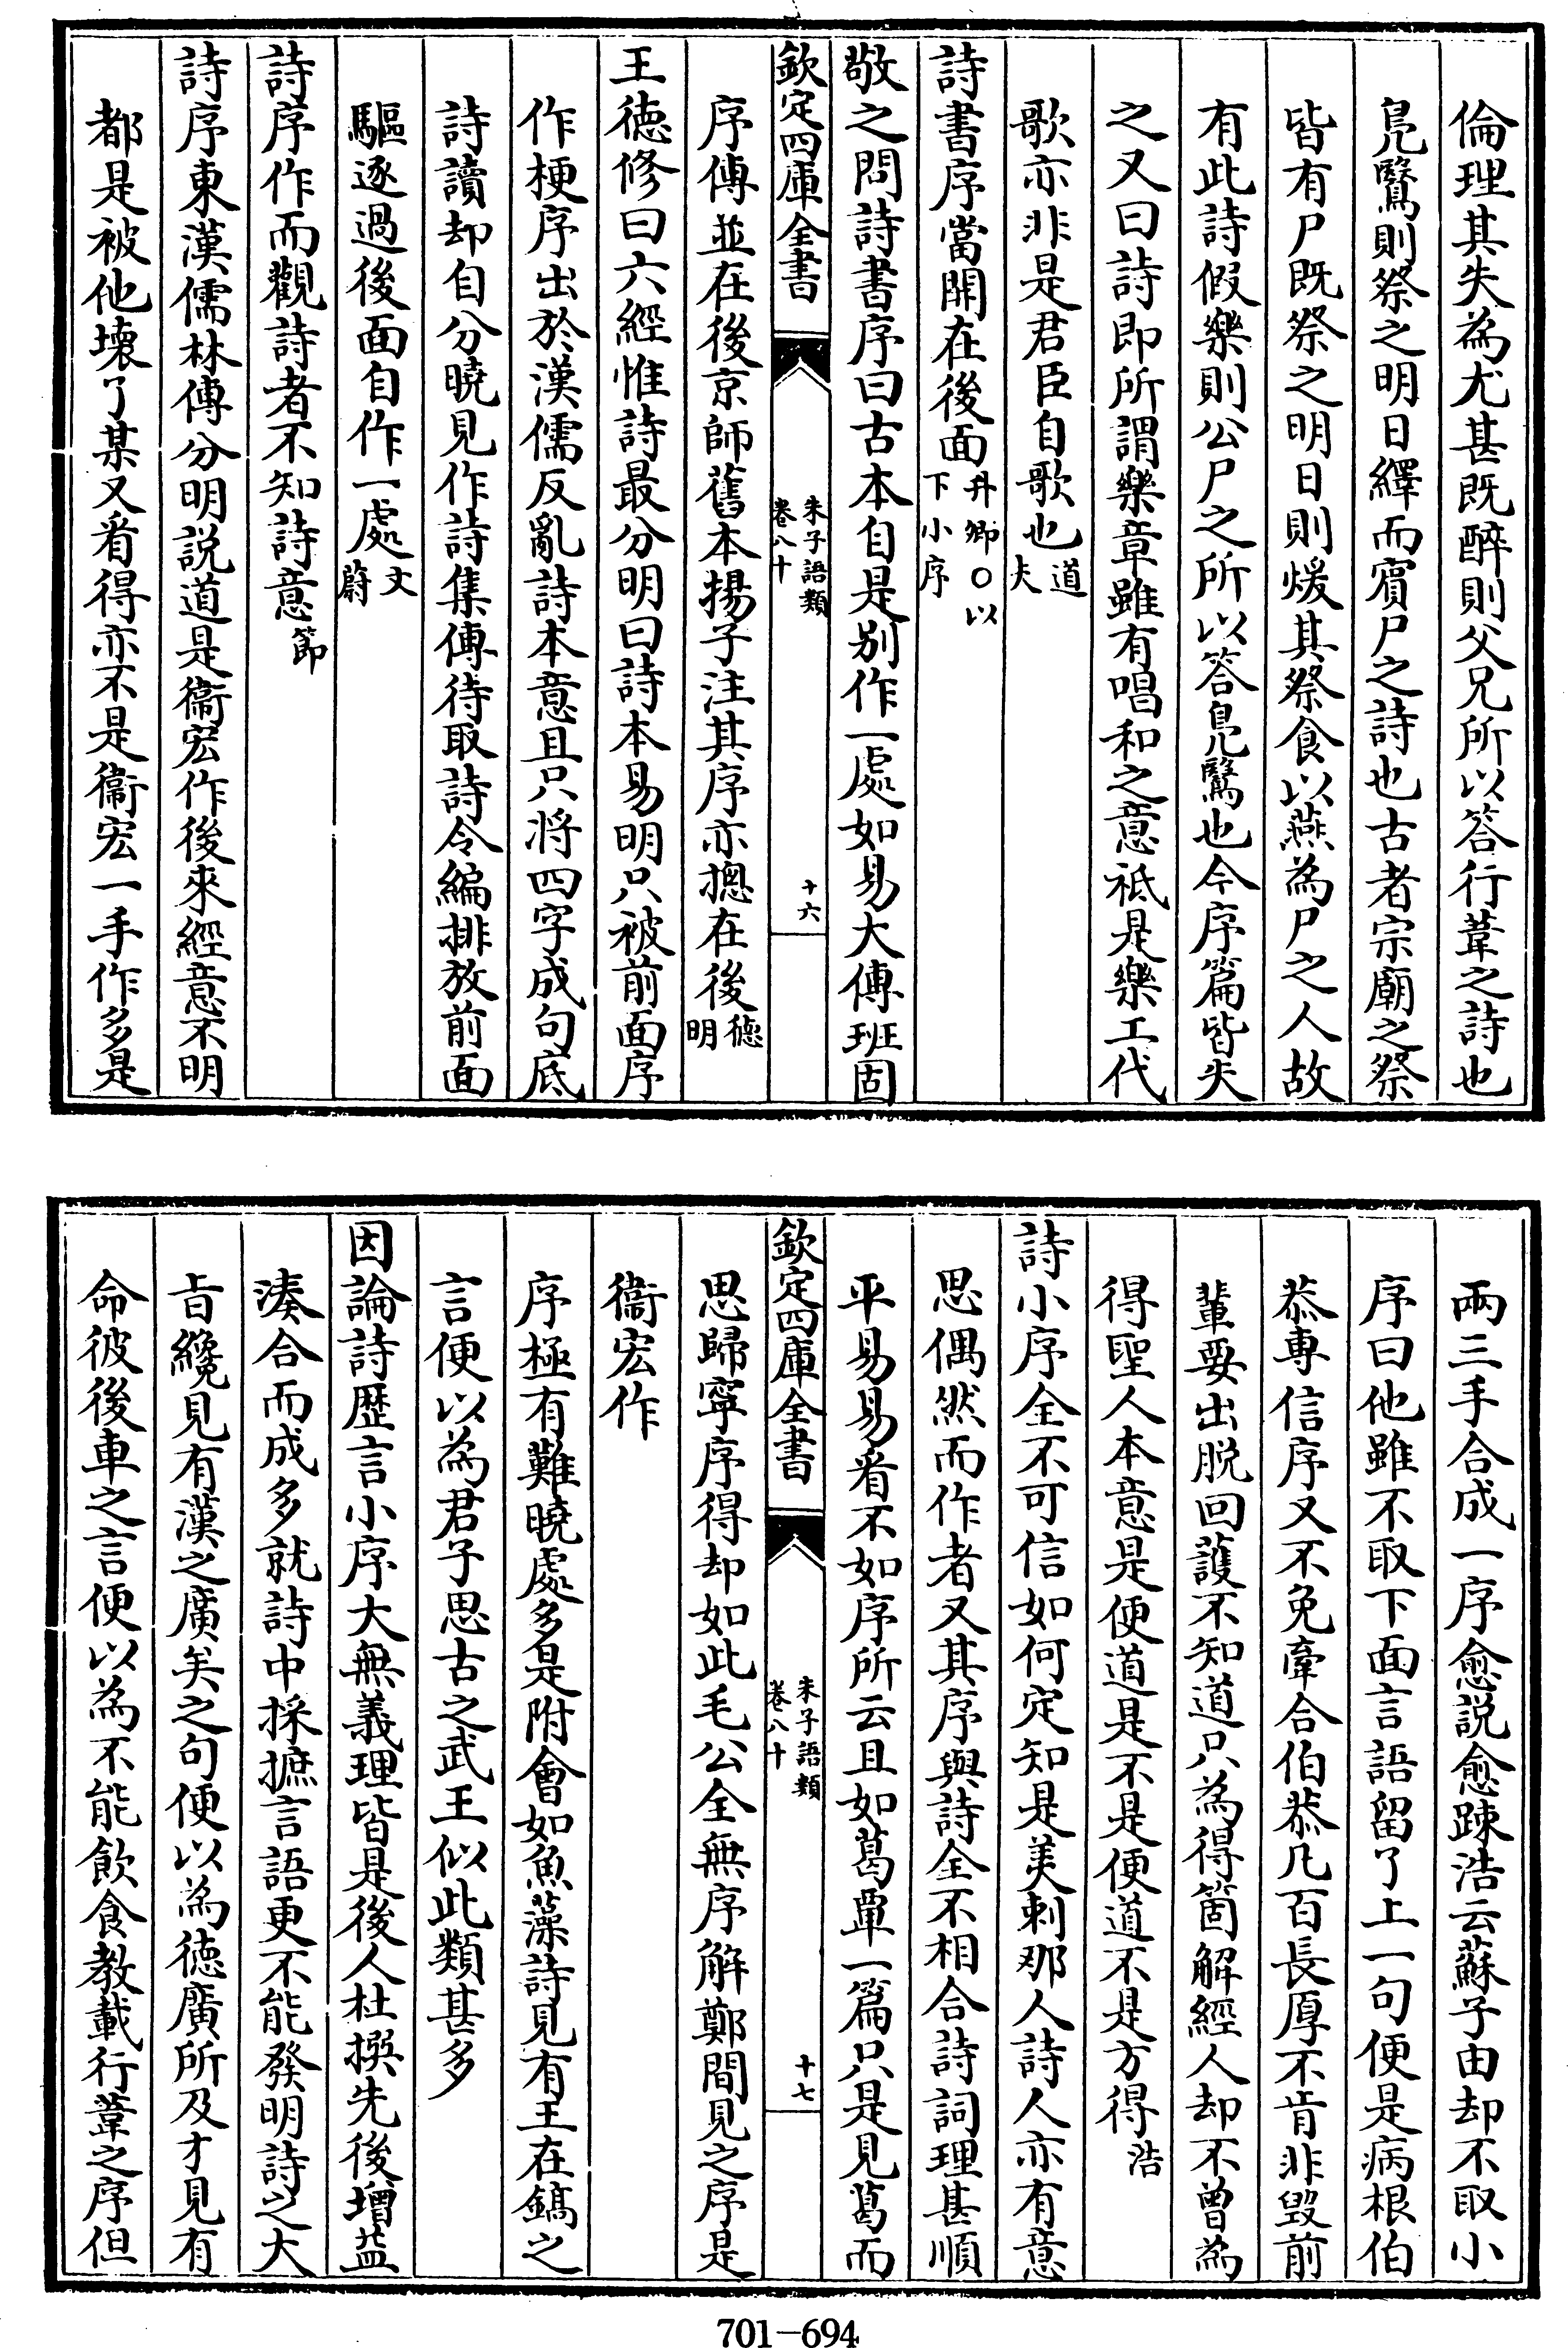 倫理其失為尤甚既醉則父兄所以答行葦之詩也
鳬鷖則祭之明日繹而賔尸之詩也古者宗廟之祭
皆有尸既祭之明日則煖其祭食以燕為尸之人故
有此詩假樂則公尸之所以答鳬鷖也今序篇皆失
之又曰詩即所謂樂章雖有唱和之意祗是樂工代
歌亦非是君臣自歌也道夫
詩書序當開在後面升卿○以下小序
敬之問詩書序曰古本自是别作一處如易大傳班固
欽定四庫全書
朱子語類
卷八十
十六
序傳並在後京師舊本揚子注其序亦摠在後德明
王徳修曰六經惟詩最分明曰詩本易明只被前面序
作梗序出於漢儒反亂詩本意且只将四字成句底
詩讀却自分曉見作詩集傳待取詩令編排放前面
驅逐過後面自作一處文蔚
詩序作而觀詩者不知詩意節
詩序東漢儒林傳分明説道是衞宏作後來經意不明
都是被他壊了某又看得亦不是衞宏一手作多是
兩三手合成一序愈説愈踈浩云蘇子由却不取小
序曰他雖不取下面言語留了上一句便是病根伯
恭専信序又不免牽合伯恭凡百長厚不肯非毁前
輩要出脱回護不知道只為得箇解經人却不曾為
得聖人本意是便道是不是便道不是方得浩
詩小序全不可信如何定知是美刺那人詩人亦有意
思偶然而作者又其序與詩全不相合詩詞理甚順
平易易看不如序所云且如葛覃一篇只是見葛而
欽定四庫全書
朱子語類
卷八十
十七
思歸寧序得却如此毛公全無序解鄭間見之序是
衞宏作
序極有難曉處多是附會如魚藻詩見有王在鎬之
言便以為君子思古之武王似此類甚多
因論詩歴言小序大無義理皆是後人杜撰先後增益
湊合而成多就詩中採摭言語更不能發明詩之大
㫖纔見有漢之廣矣之句便以為徳廣所及才見有
命彼後車之言便以為不能飲食教載行葦之序但
701-694